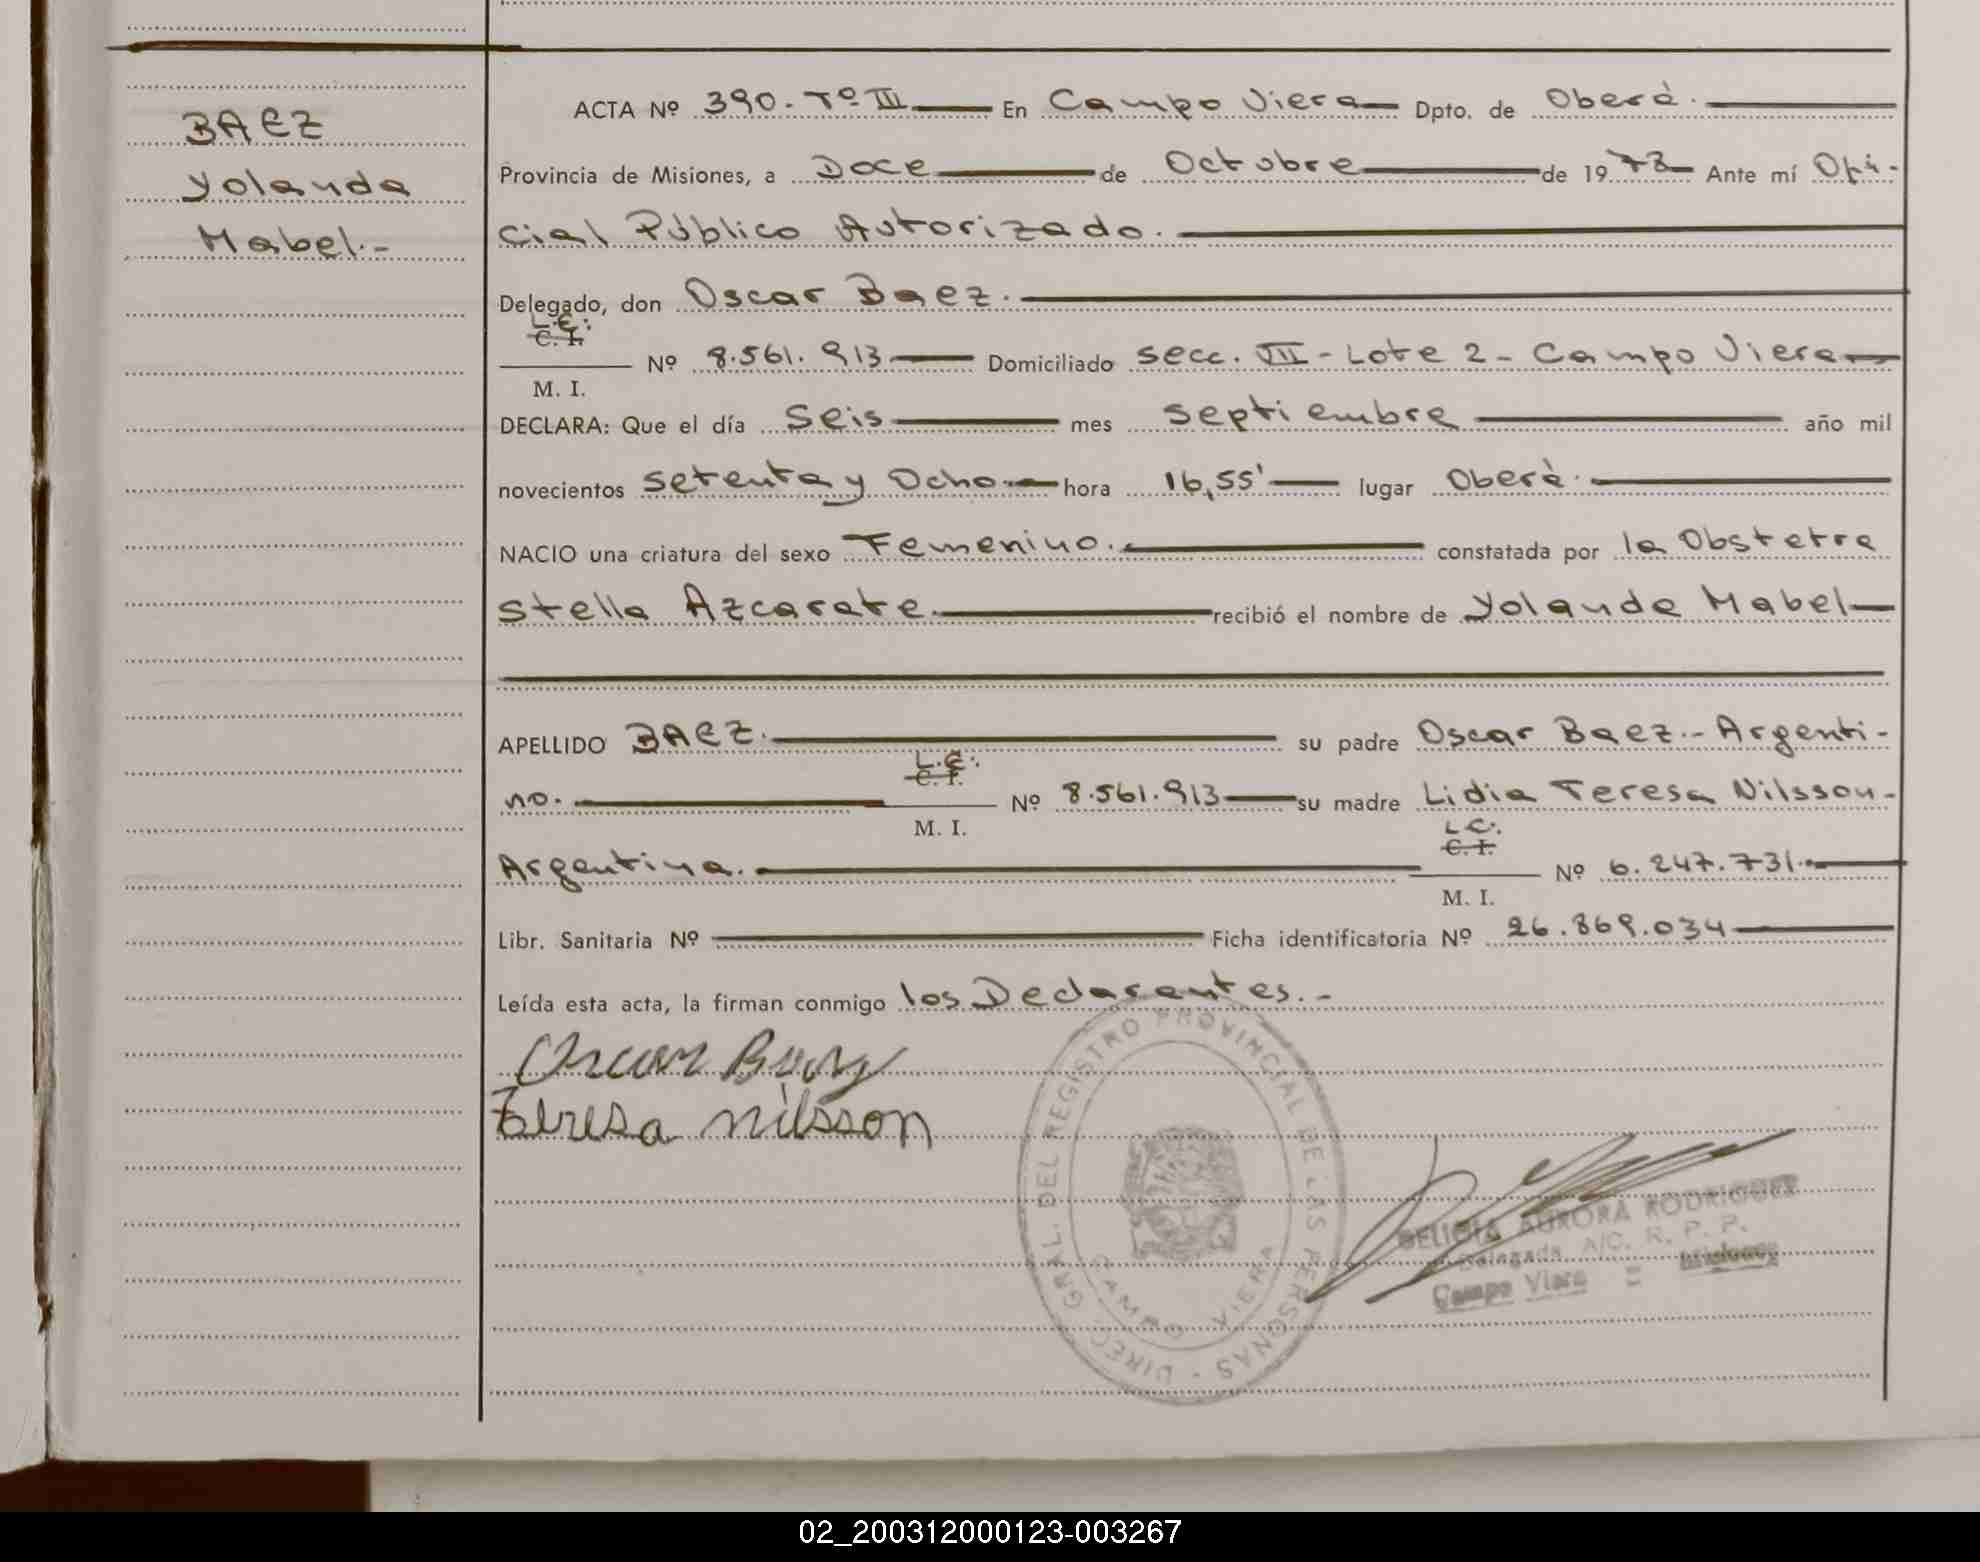 BAEZ
Yolanda
Mabel.-
ACTA Nº 390. Tº III En Campo Viera Dpto. de Oberá.
Provincia de Misiones, a Doce de Octubre de 1978 Ante mí Ofi-
cial Público Autorizado.
Delegado, don Oscar Baez.
L.E.:
C. I.
Nº 8.561.913 Domiciliado Secc. VII - Lote 2 - Campo Viera
M. I.
DECLARA: Que el día Seis mes Septiembre año mil
novecientos Setenta y Ocho hora 16,55' lugar Oberá.
NACIO una criatura del sexo Femenino. constatada por la Obstetra
Stella Azcarate. recibió el nombre de Yolanda Mabel
APELLIDO BAEZ. su padre Oscar Baez.- Argenti-
L.E.:
C. I.
no. Nº 8.561.913 su madre Lidia Teresa Nilsson-
M. I.
L.C.:
C. I.
Argentina. Nº 6.247.731.
M. I.
Libr. Sanitaria Nº Ficha identificatoria Nº 26.869.034
Leída esta acta, la firman conmigo los Declarantes.-
Oscar Baez
Teresa nilsson
DIREC. GRAL. DEL REGISTRO PROVINCIAL DE LAS PERSONAS -
CAMPO VIERA
DELICIA AURORA RODRIGUEZ
Delegada A/C. R. P. P.
Campo Viera = Misiones
02_200312000123-003267